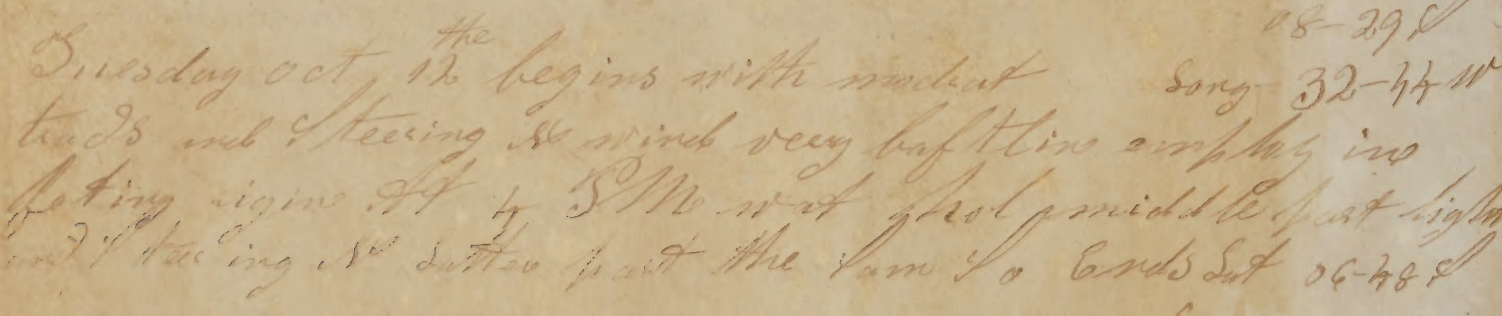 08-29 S
Tuesday oct the 12 begins with modrat Long 32-44 W
trads and Steering N wind very baftlin employ in
feting rigin At 4 P M wat whol middle part light
and Steering N Latter part the Sam So Ends Lat 06-48 S